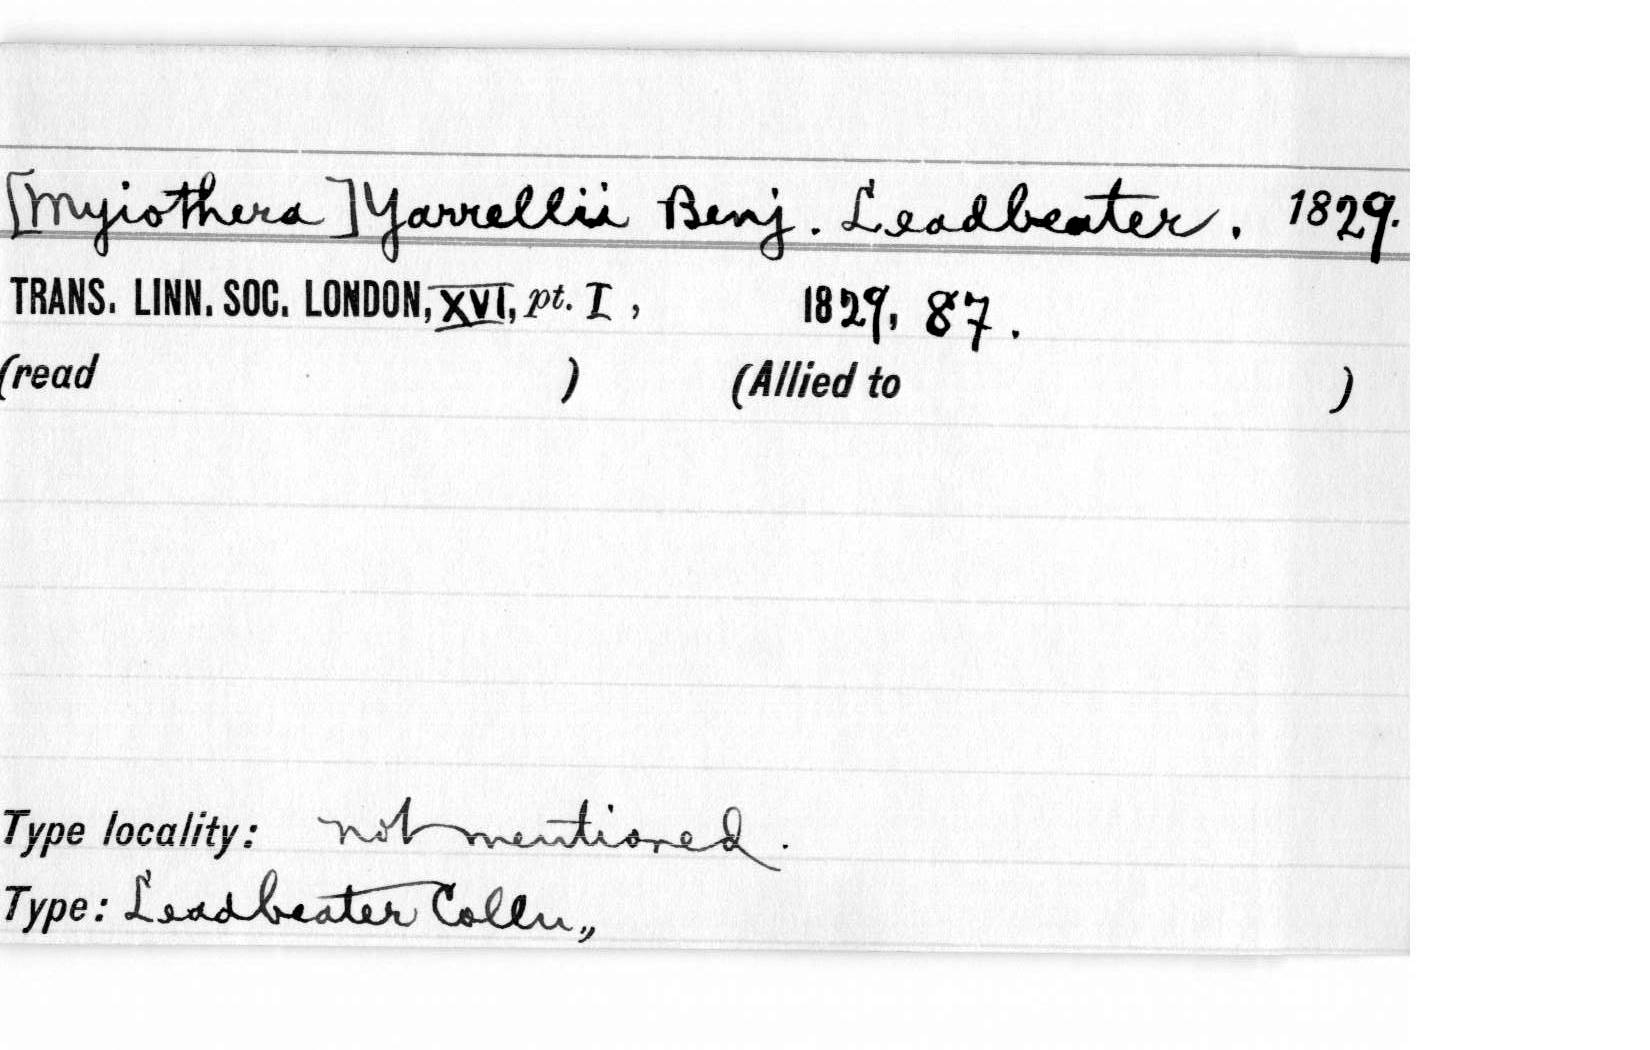 [Myiothera] Yarrellii Benj. Leadbeater. 1829.
TRANS. LINN. SOC. LONDON, XVI, pt. I, 1829, 87.
(read ) (Allied to )
Type locality: not mentioned.
Type: Leadbeater Colln.,